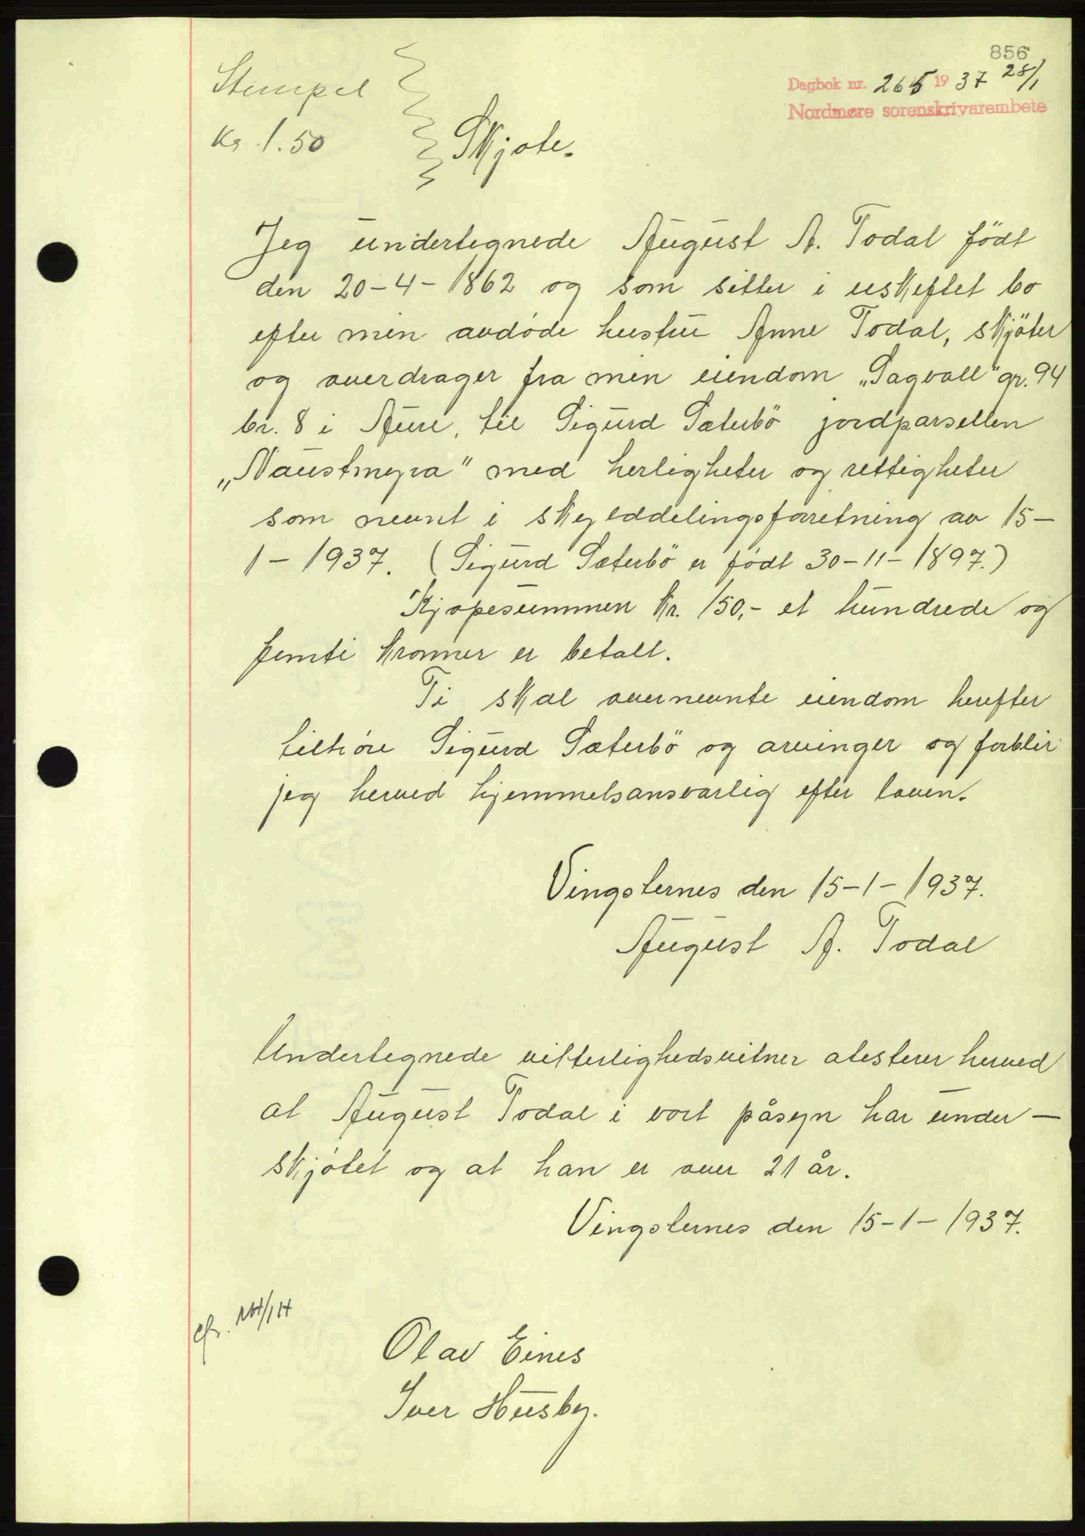 856
Dagbok nr. 265 19 37 28/1
Nordmøre sorenskrivarembete
Stempel
Kr 1.50
Skjøte.
Jeg undertegnede August A. Todal født
den 20-4-1862 og som sitter i uskiftet bo
efter min avdøde hustru Anne Todal, skjøter
og overdrager fra min eiendom „Sagvall" gr. 94
br. 8 i Aure, til Sigurd Sæterbö jordparsellen
„Naustmyra" med herligheter og rettigheter
som nevnt i skylddelingsforretning av 15-
1-1937. (Sigurd Sæterbö er født 30-11-1897.)
Kjøpesummen Kr. 150,- et hundrede og
femti kronner er betalt.
Ti skal overnevnte eiendom herefter
tilhøre Sigurd Sæterbö og arvinger og forblir
jeg herved hjemmelsansvarlig efter loven.
Vingsternes den 15-1-1937.
August A. Todal
Undertegnede vitterlighedsvitner atesterer herved
at August Todal i vort påsyn har under-
skjøtet og at han er over 21 år.
Vingsternes den 15-1-1937.
cfr.
Olav Eines
Iver Husby.